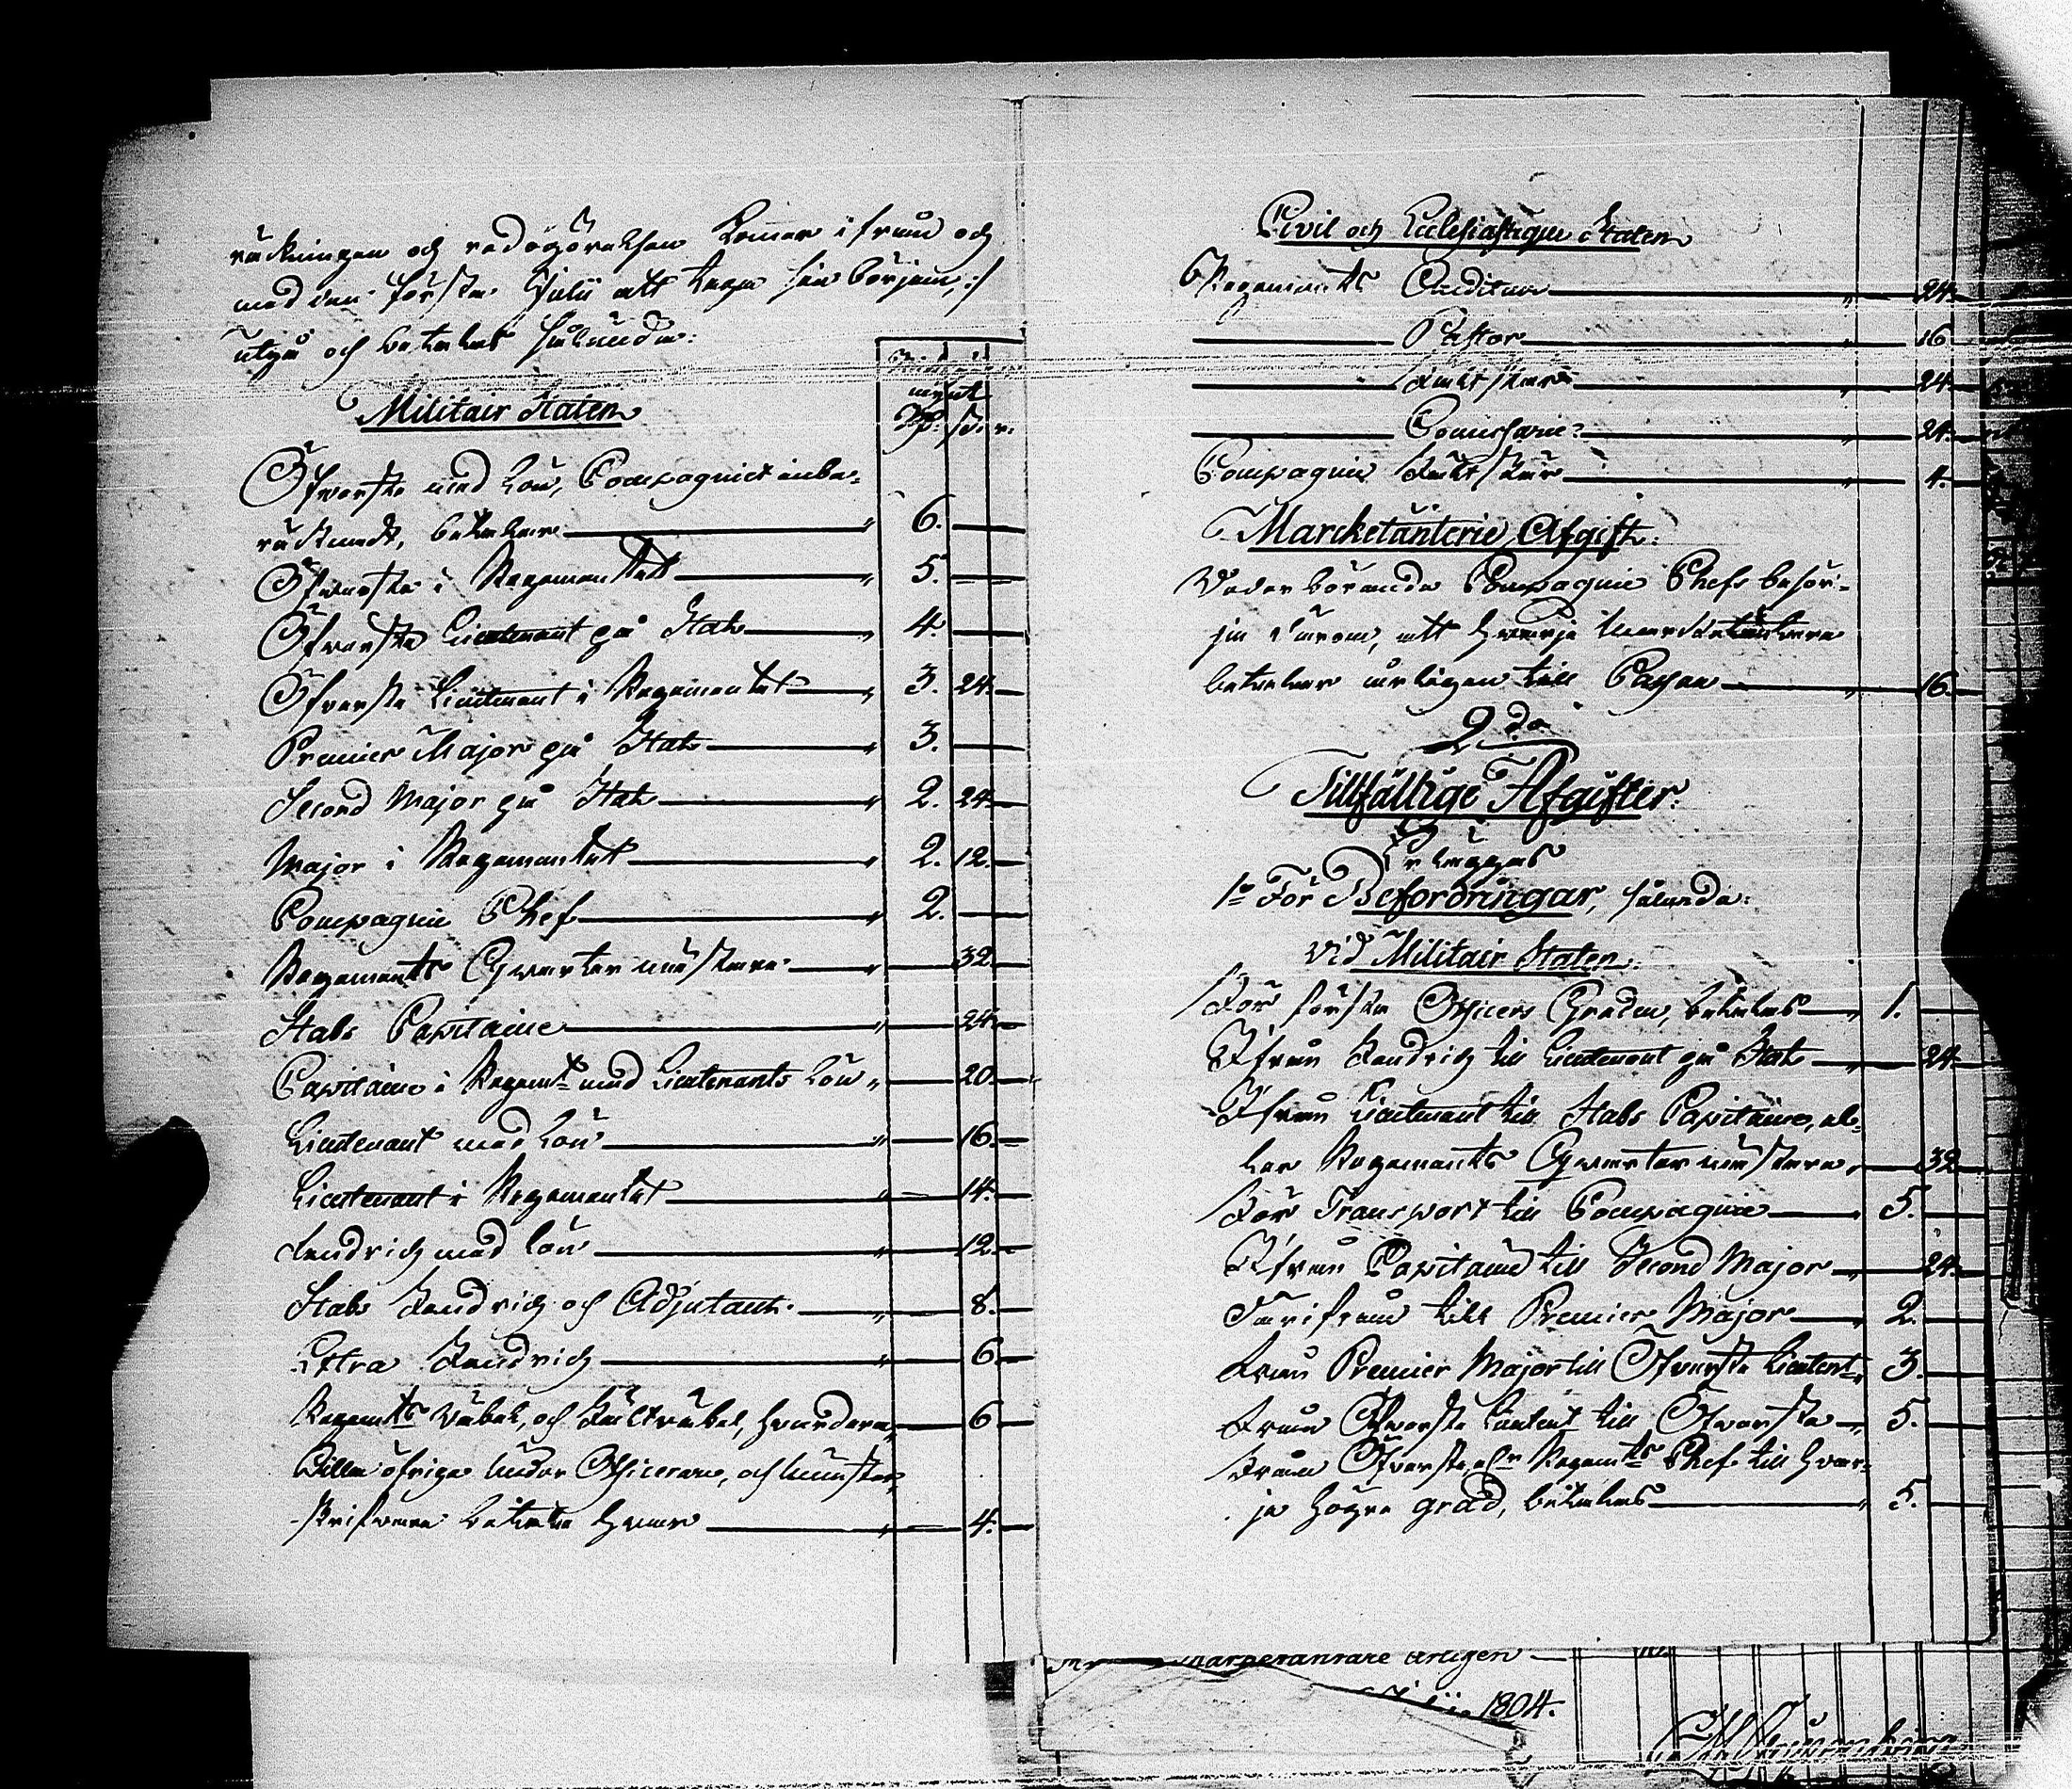 räkningen och redogörelsen komer ifrån och
med den första Julii att taga sin början,
utgå och betalas sålunda:
mynt
Rd. sk. r.
Militair Staten
Öfverste med Lön, Compagniet inbe-
räknadt, betalar 6.
Öfverste i Regementet 5.
Öfverste Lieutenant på Stat 4.
Öfverste Lieutenant i Regementet 3. 24.
Premier Major på Stat 3.
Second Major på Stat 2. 24
Major i Regementet 2. 12.
Compagnie Chef 2.
Regements Qvartermästare 32.
Stabs Capitaine 24.
Capitaine i Regemt. med Lieutenants Lön 20.
Lieutenant med Lön 16.
Lieutenant i Regementet 14.
Fendrich med Lön 12.
Stabs Fendrich och Adjutant 8.
Extra Fendrich 6.
Regemts Väbel, och Fältväbel, hvardera 6
Alla öfriga Under Officerare, och Mönster-
skrifvare betala hvar 4.
Civil och Ecclesiastique Staten
Regements Auditeur 24.
Pastor 16
Fältskär 24.
Comissarie 24.
Compagnie Fältskär 4.
Marcketänterie Afgift.
Vederbörande Compagnie Chefs besör-
ja därom, att hvarje Marcketäntare
betalar årligen till Cassan 16.
2do
Tillfällige Afgifter.
Erläggas
1o För Befordringar, sålunda:
vid Militair Staten.
För första Officers Graden, betalas 1.
Ifrån Fendrich till Lieutenant på Stat 24
Ifrån Lieutenant till Stabs Capitaine, el-
ler Regements Qvartermästare 32
För Transport till Compagnie 5.
Ifrån Capitaine till Second Major 24.
Därifrån till Premier Major 2.
Från Premier Major till Öfverste Lieutent 3.
Från Öfverste Lieutent till Öfverste 5.
Från Öfverste, elr Regemts Chef till hvar-
je högre grad, betalas 5.
årligen
1804.